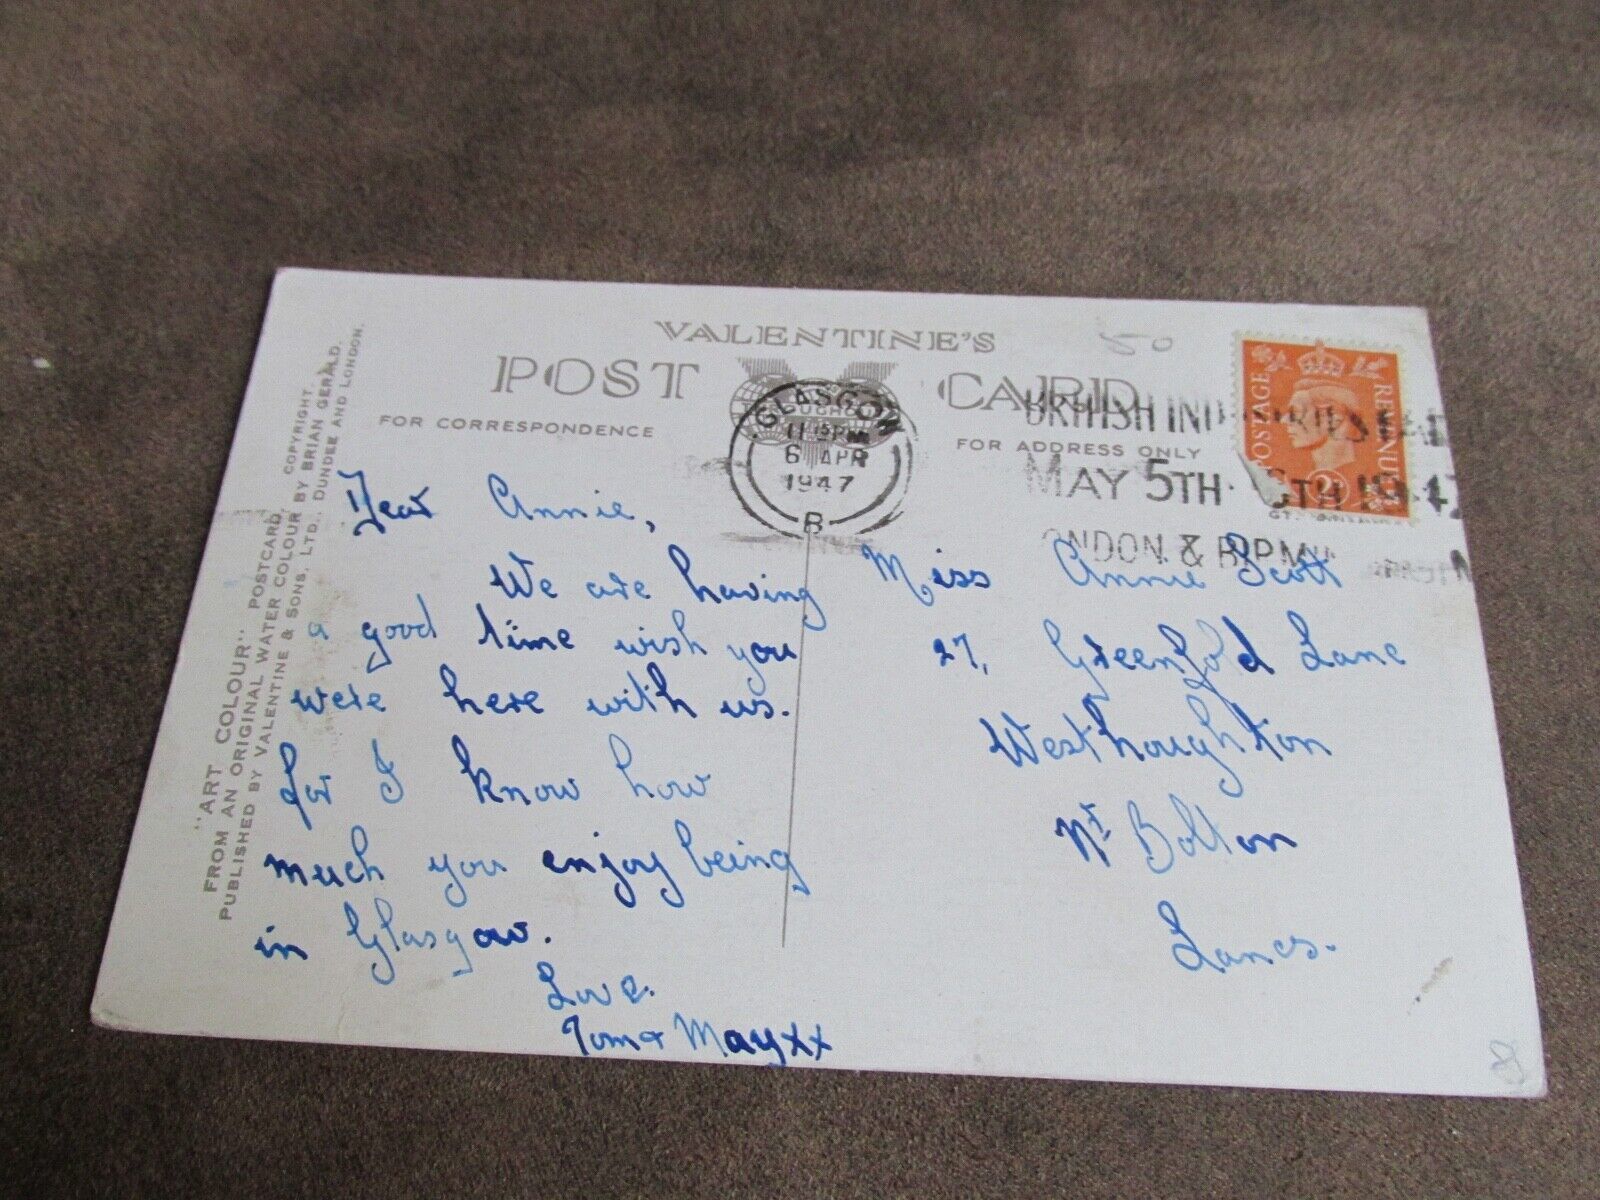 VALENTINE'S
POST CARD
FOR CORRESPONDENCE
FOR ADDRESS ONLY
"ART COLOUR" POSTCARD. COPYRIGHT.
FROM AN ORIGINAL WATER COLOUR BY BRIAN GERALD.
PUBLISHED BY VALENTINE & SONS, LTD., DUNDEE AND LONDON.
GLASGOW
6 APR
1947
B
BRITISH INDUSTRIES FAIR
MAY 5TH - 16TH 1947
LONDON & BIRMINGHAM
POSTAGE REVENUE
2D
80
Dear Annie,
We are having
a good time wish you
were here with us.
for I know how
much you enjoy being
in Glasgow.
Love.
Tom & May xx
Miss Annie Scott
27, Greenfold Lane
Westhoughton
Nr Bolton
Lancs.
8